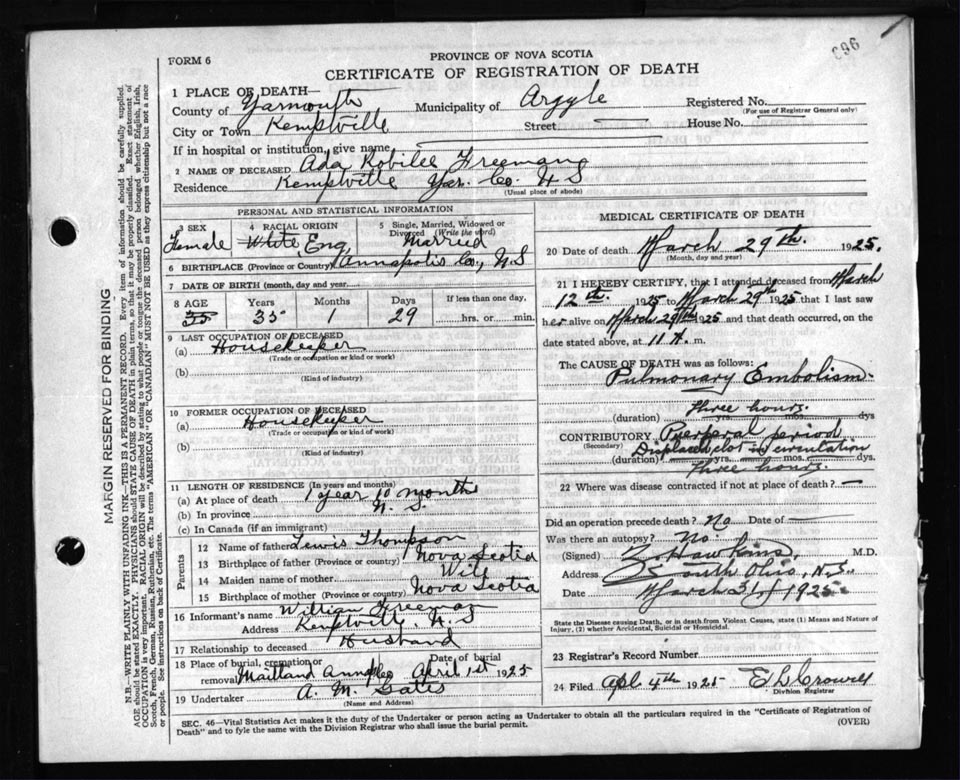 963
FORM 6
PROVINCE OF NOVA SCOTIA
CERTIFICATE OF REGISTRATION OF DEATH
1 PLACE OF DEATH—
County of Yarmouth Municipality of Argyle Registered No.
(For use of Registrar General only)
City or Town Kemptville Street House No.
If in hospital or institution, give name
2 NAME OF DECEASED Ada Robilee Freeman
Residence Kemptville Yar. Co. N S
(Usual place of abode)
PERSONAL AND STATISTICAL INFORMATION
3 SEX 4 RACIAL ORIGIN 5 Single, Married, Widowed or Divorced (Write the word)
Female White Eng Married
6 BIRTHPLACE (Province or Country) Annapolis Co., N.S
7 DATE OF BIRTH (month, day and year)
8 AGE Years Months Days If less than one day,
35 35 1 29 hrs. or min.
9 LAST OCCUPATION OF DECEASED
(a) Housekeeper
(Trade or occupation or kind or work)
(b)
(Kind of industry)
10 FORMER OCCUPATION OF DECEASED
(a) Housekeeper
(Trade or occupation or kind of work)
(b)
(Kind of industry)
11 LENGTH OF RESIDENCE (In years and months)
(a) At place of death 1 year 10 months
(b) In province N. S.
(c) In Canada (if an immigrant)
Parents
12 Name of father Lewis Thompson
13 Birthplace of father (Province or country) Nova Scotia
14 Maiden name of mother
15 Birthplace of mother (Province or country) Nova Scotia
16 Informant's name William Freeman
Address Kemptville, N.S
17 Relationship to deceased Husband
18 Place of burial, cremation or removal Maitland Annap Co Date of burial April 1st 1925
19 Undertaker A. M. Gates
(Name and Address)
MEDICAL CERTIFICATE OF DEATH
20 Date of death March 29th. 1925.
(Month, day and year)
21 I HEREBY CERTIFY, that I attended deceased from March
12th. 1925 to March 29th 1925 that I last saw
her alive on March 29th 1925 and that death occurred, on the
date stated above, at 11 A. m.
The CAUSE OF DEATH was as follows:
Pulmonary Embolism.
Three hours.
(duration) yrs. mos. dys
CONTRIBUTORY Puerperal period
(Secondary) Displaced clot in circulation
(duration) yrs. mos. dys.
Three hours.
22 Where was disease contracted if not at place of death? —
Did an operation precede death? No Date of —
Was there an autopsy? No.
(Signed) Hawkins. M.D.
Address South Ohio, N.S.
Date March 31 1925.
State the Disease causing Death, or in death from Violent Causes, state (1) Means and Nature of
Injury, (2) whether Accidental, Suicidal or Homicidal.
23 Registrar's Record Number
24 Filed Apl. 4th 1925 Crowell
Division Registrar
SEC. 46—Vital Statistics Act makes it the duty of the Undertaker or person acting as Undertaker to obtain all the particulars required in the "Certificate of Registration of
Death" and to fyle the same with the Division Registrar who shall issue the burial permit. (OVER)
MARGIN RESERVED FOR BINDING
N.B.—WRITE PLAINLY WITH UNFADING INK—THIS IS A PERMANENT RECORD. Every item of information should be carefully supplied.
AGE should be stated EXACTLY. PHYSICIANS should STATE CAUSE OF DEATH in plain terms, so that it may be properly classified. Exact statement of
OCCUPATION is very important. RACIAL ORIGIN will be described by stating to what people or tongue the deceased person belonged whether English, Irish,
Scotch, French, German, Russian, Ruthenian, etc. The terms "AMERICAN" OR "CANADIAN" MUST NOT BE USED as they express citizenship but not a race
or people. See instructions on back of Certificate.